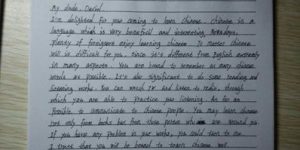 My dude, David.
I'm delighted for you coming to learn Chinese. Chinese is a
language which is very beautiful and interesting. Nowadays,
plenty of foreigners enjoy learning Chinese. To master Chinese
well is difficult for you, since it's different from English
in many aspects. You are bound to remember as many Chinese
words as possible. It's also significant to do some reading and
listening works. You can watch TV and listen to radio, through
which you are able to practice your listening. As far as
possible to communicate to Chinese people. You may learn Chinese
not only from books but from those person who are around you
If you have any problem in your works, you could turn to me.
I trust that you will be bound to learn Chinese well.